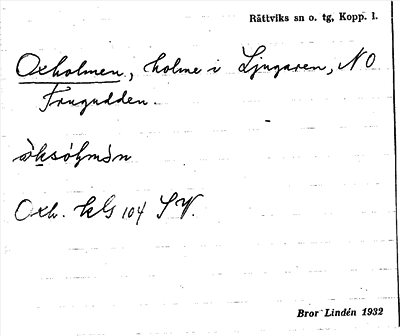 Rättviks sn o. tg, Kopp. l.
Oxholmen, holme i Ljugaren, NO
Frugudden.
Oxh. kbl 104 SV.
Bror Lindén 1932